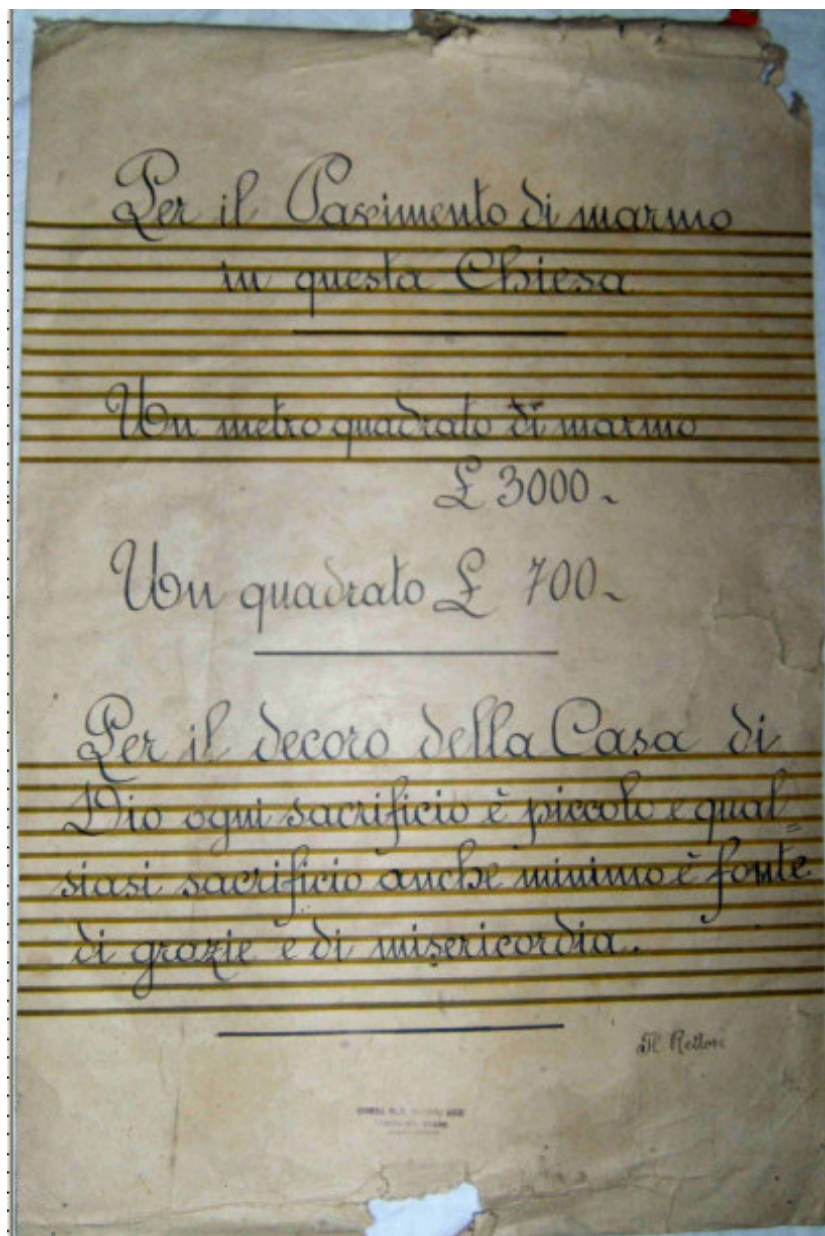 Per il Pavimento di marmo
in questa Chiesa
Un metro quadrato di marmo
£ 3000~
Un quadrato £ 700~
Per il decoro della Casa di
Dio ogni sacrificio è piccolo e qual=
siasi sacrificio anche minimo è fonte
di grazie e di misericordia.
Il Rettore